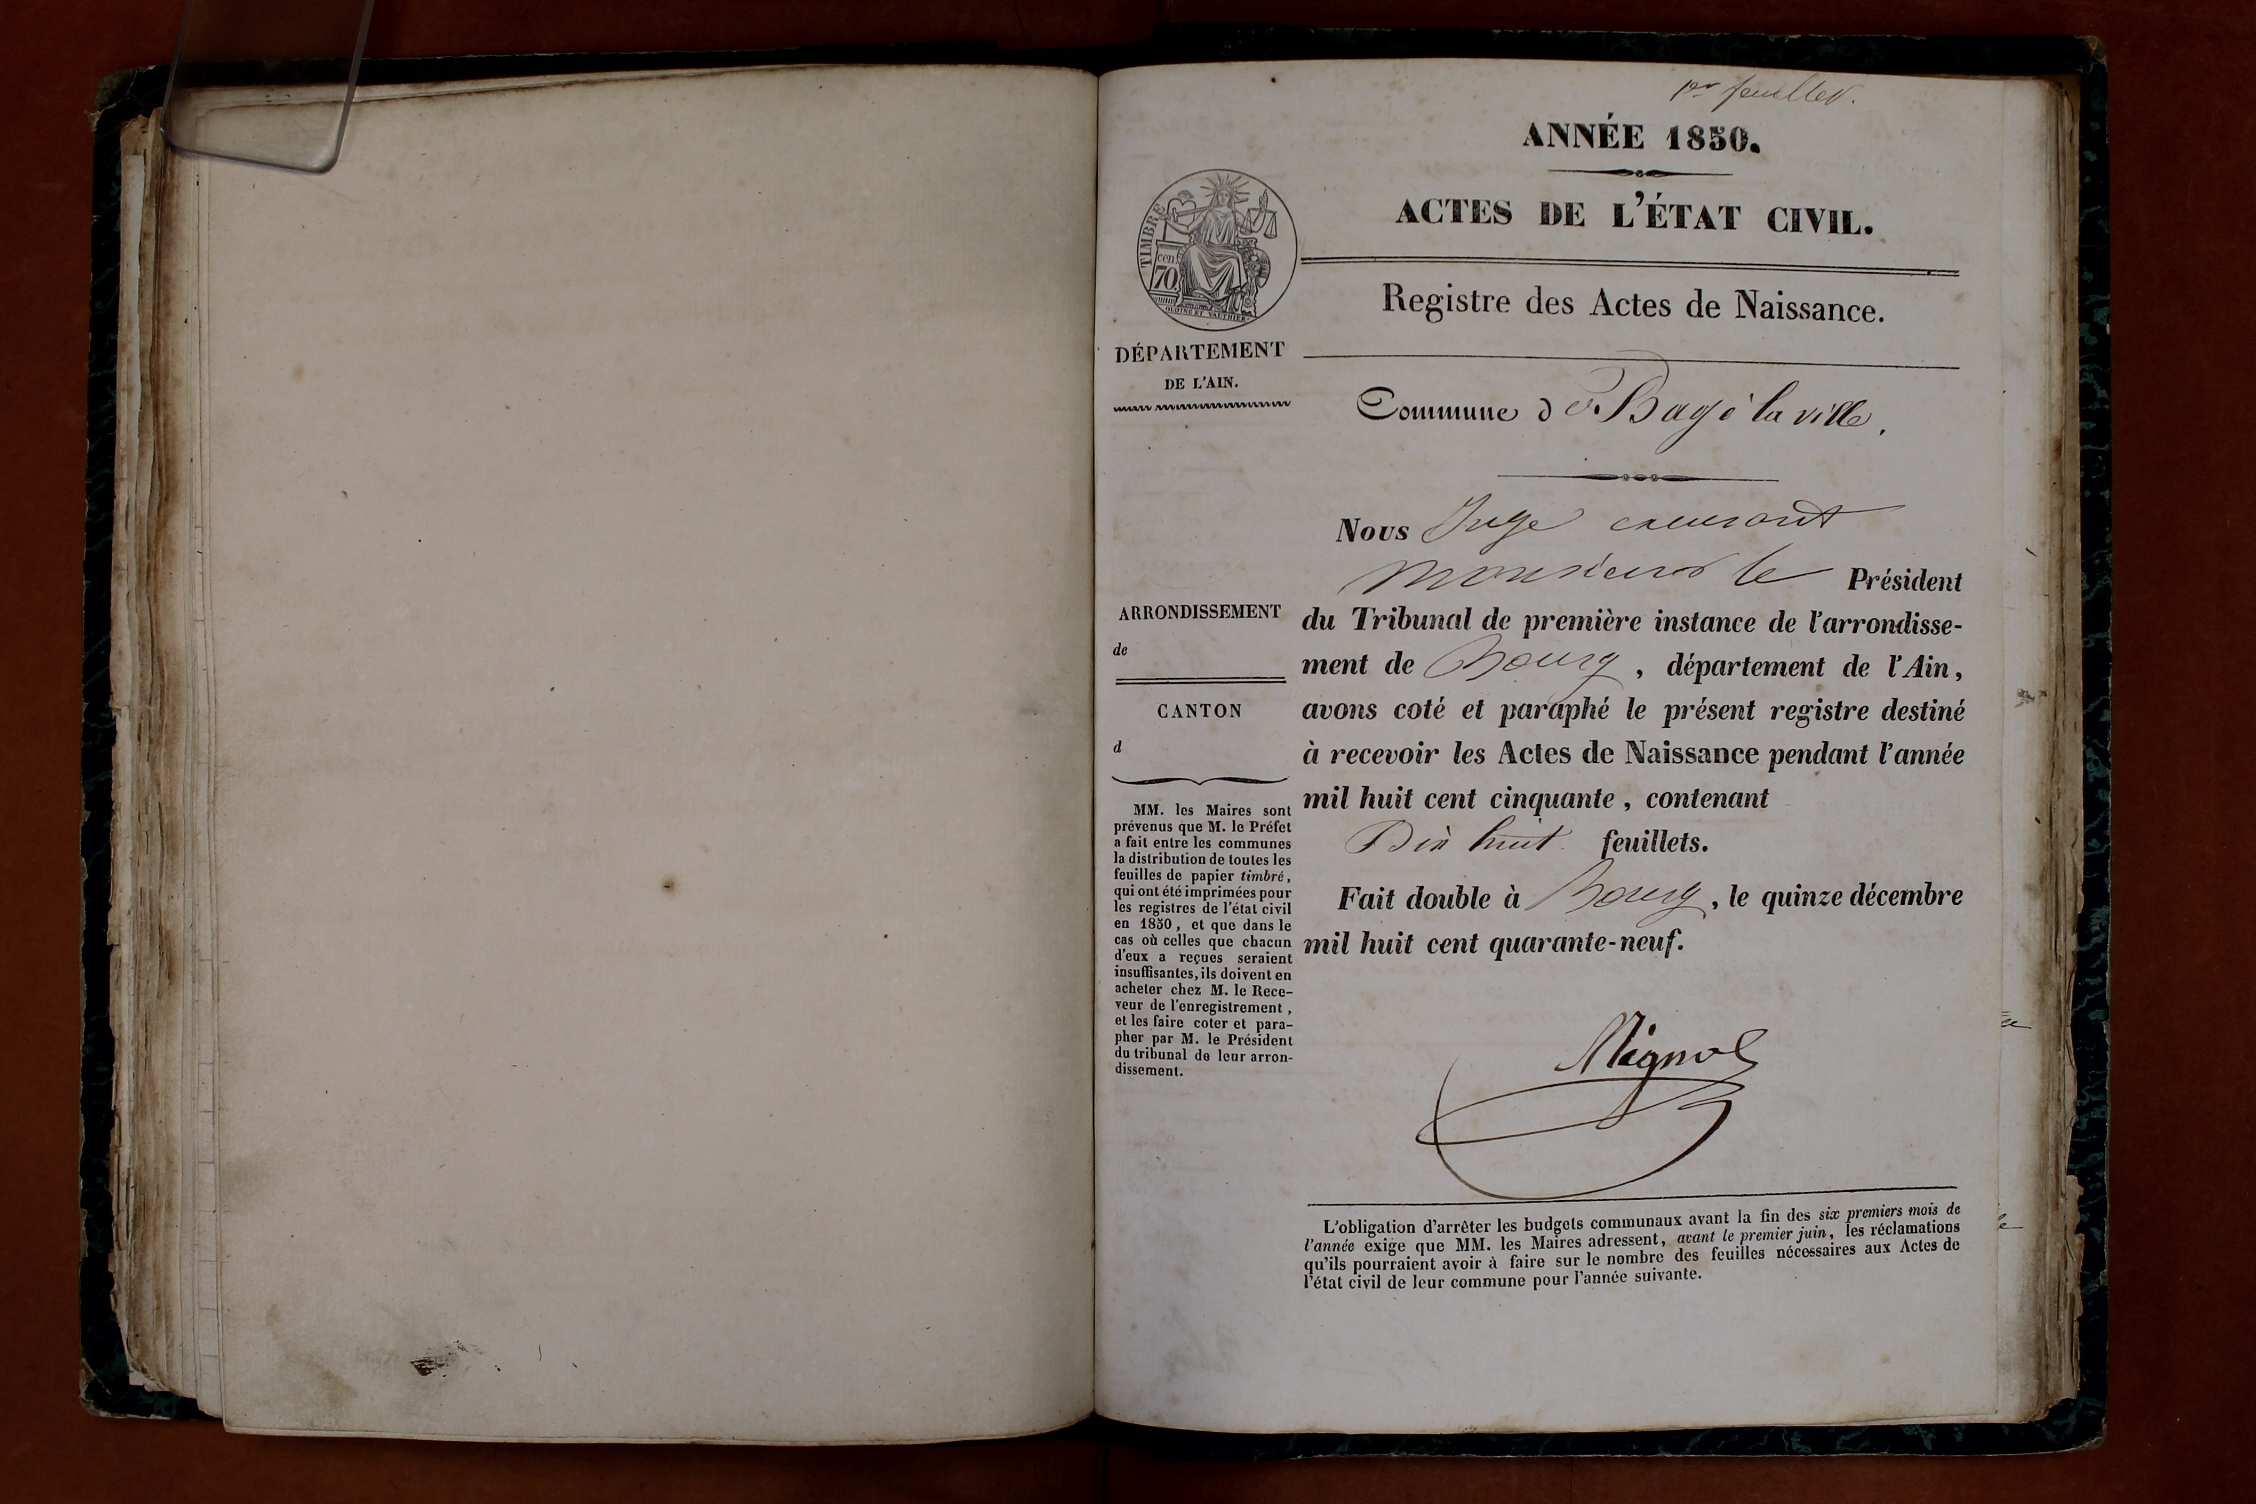 1er feuillet.
ANNÉE 1850.
ACTES DE L'ÉTAT CIVIL.
TIMBRE
cen
70
OUDINE ET VAUTHIER
Registre des Actes de Naissance.
DÉPARTEMENT
DE L'AIN.
Commune de Bagé la ville.
Nous Juge
monsieur le Président
du Tribunal de première instance de l'arrondisse-
ment de Bourg, département de l'Ain,
avons coté et paraphé le présent registre destiné
à recevoir les Actes de Naissance pendant l'année
mil huit cent cinquante, contenant
Dix huit feuillets.
Fait double à Bourg, le quinze décembre
mil huit cent quarante-neuf.
ARRONDISSEMENT
de
CANTON
d
MM. les Maires sont
prévenus que M. le Préfet
a fait entre les communes
la distribution de toutes les
feuilles de papier timbré,
qui ont été imprimées pour
les registres de l'état civil
en 1850, et que dans le
cas où celles que chacun
d'eux a reçues seraient
insuffisantes, ils doivent en
acheter chez M. le Rece-
veur de l'enregistrement,
et les faire coter et para-
pher par M. le Président
du tribunal de leur arron-
dissement.
L'obligation d'arrêter les budgets communaux avant la fin des six premiers mois de
l'année exige que MM. les Maires adressent, avant le premier juin, les réclamations
qu'ils pourraient avoir à faire sur le nombre des feuilles nécessaires aux Actes de
l'état civil de leur commune pour l'année suivante.